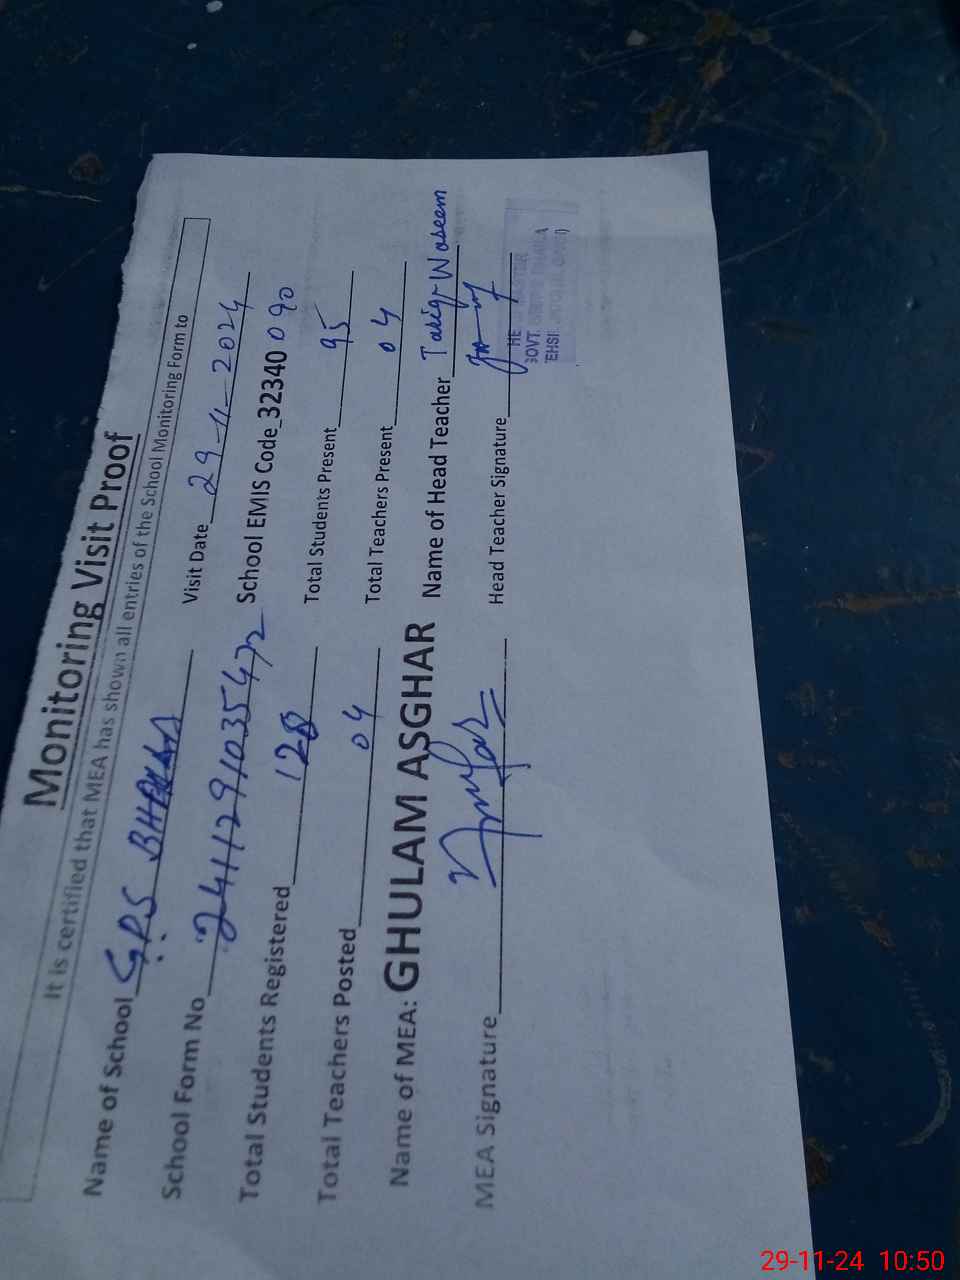 Monitoring Visit Proof
It is certified that MEA has shown all entries of the School Monitoring Form to
Name of School G.P.S Visit Date 29-11-2024
School Form No 2411291035472 School EMIS Code_32340090
Total Students Registered 128 Total Students Present 95
Total Teachers Posted 04 Total Teachers Present 04
Name of MEA: GHULAM ASGHAR Name of Head Teacher Tariq Waseem
MEA Signature Head Teacher Signature
GOVT.
29-11-24 10:50